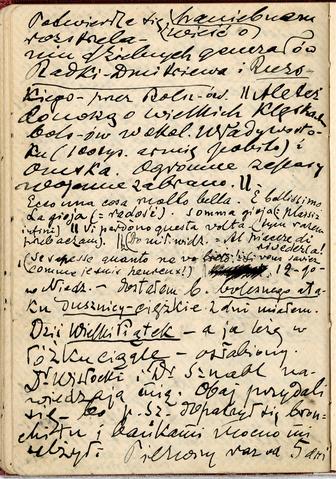 Potwierdza się (haniebnem
wieść o)
rozstrzela-
niu dzielnych generałów
Radki-Dmitriewa i Ruzs-
kiego przez Bolsz-ów. || Też
donoszą o wielkich klęskach
bols-ów w okol. Władywosto-
ku (100 tys. armię pobito) i
Omska. Ogromne zapasy
wojenne zabrano. ||
Ecco una cosa molto bella. È bellissimo
La gioja (= radość). somma gioja (= plaisir
infini) || Vi perdono questa volta (tym razem
przebaczam). || Al piacere di
rivederla!
(Se sapesse quanto ne vo
(Comme je suis heureux!) 12-go
w Niedz. - dostałem b. bolesnego ata-
ku dusznicy - ciężkie 2 dni miałem.
Dziś Wielki Piątek - a ja leżę w
łóżku ciągle - osłabiony.
Dr Wisłocki i Dr Sznabl na-
wiedzają mię. Obaj przydali
się - bo p. Sz. dopatrzył się bron-
chitu i bańkami mocno mi
ulżył. Pierwszy raz od 5 dni